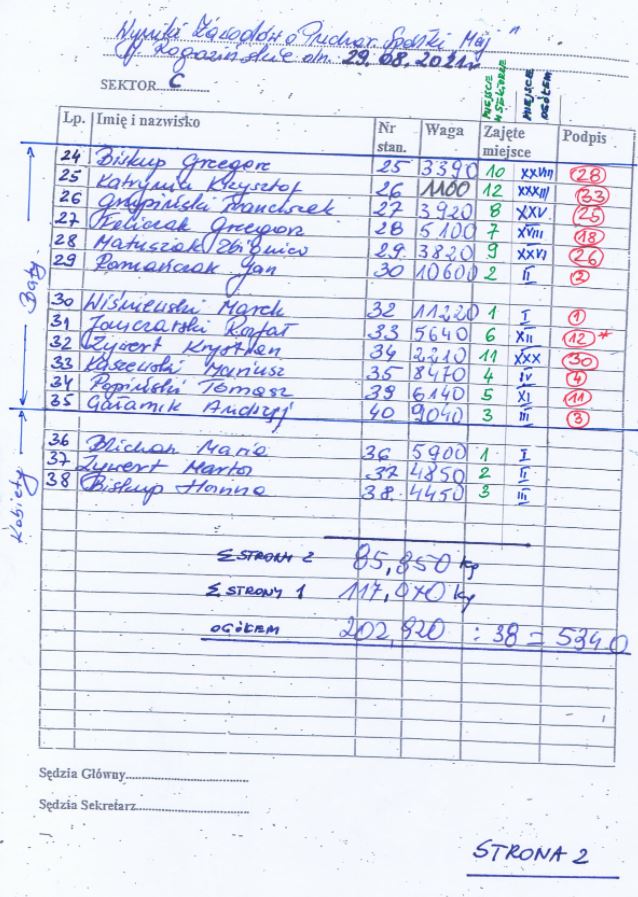 Wyniki Zawodów o Puchar Spółki Maj"
Zagozińskie dn. 29.08.2021r
SEKTOR C
MIEJSCE W SEKTORZE
MIEJSCE OGÓŁEM
Lp. Imię i nazwisko Nr stan. Waga Zajęte miejsce Podpis
24 Biskup Grzegorz 25 3390 10 XXVIII 28
25 Krzysztof 26 1100 12 XXXIII 33
26 Franciszek 27 3920 8 XXV 25
27 Feliczak Grzegorz 28 5100 7 XVIII 18
28 Matuszak Zbigniew 29 3820 9 XXVI 26
29 Romańczak Jan 30 10600 2 II 2
Baty
30 Wiśniewski Marek 32 11220 1 I 1
31 Rafał 33 5640 6 XII 12 *
32 Zywert Krystian 34 2210 11 XXX 30
33 Kaszewski Mariusz 35 8470 4 IV 4
34 Popiński Tomasz 39 6140 5 XI 11
35 Andrzej 40 9040 3 III 3
Kobiety
36 Maria 36 5900 1 I
37 Zywert Marta 37 4850 2 II
38 Biskup Hanna 38 4450 3 III
Σ STRONY 2 85,850 kg
Σ STRONY 1 117,070 kg
OGÓŁEM 202,920 : 38 = 5340
Sędzia Główny
Sędzia Sekretarz
STRONA 2